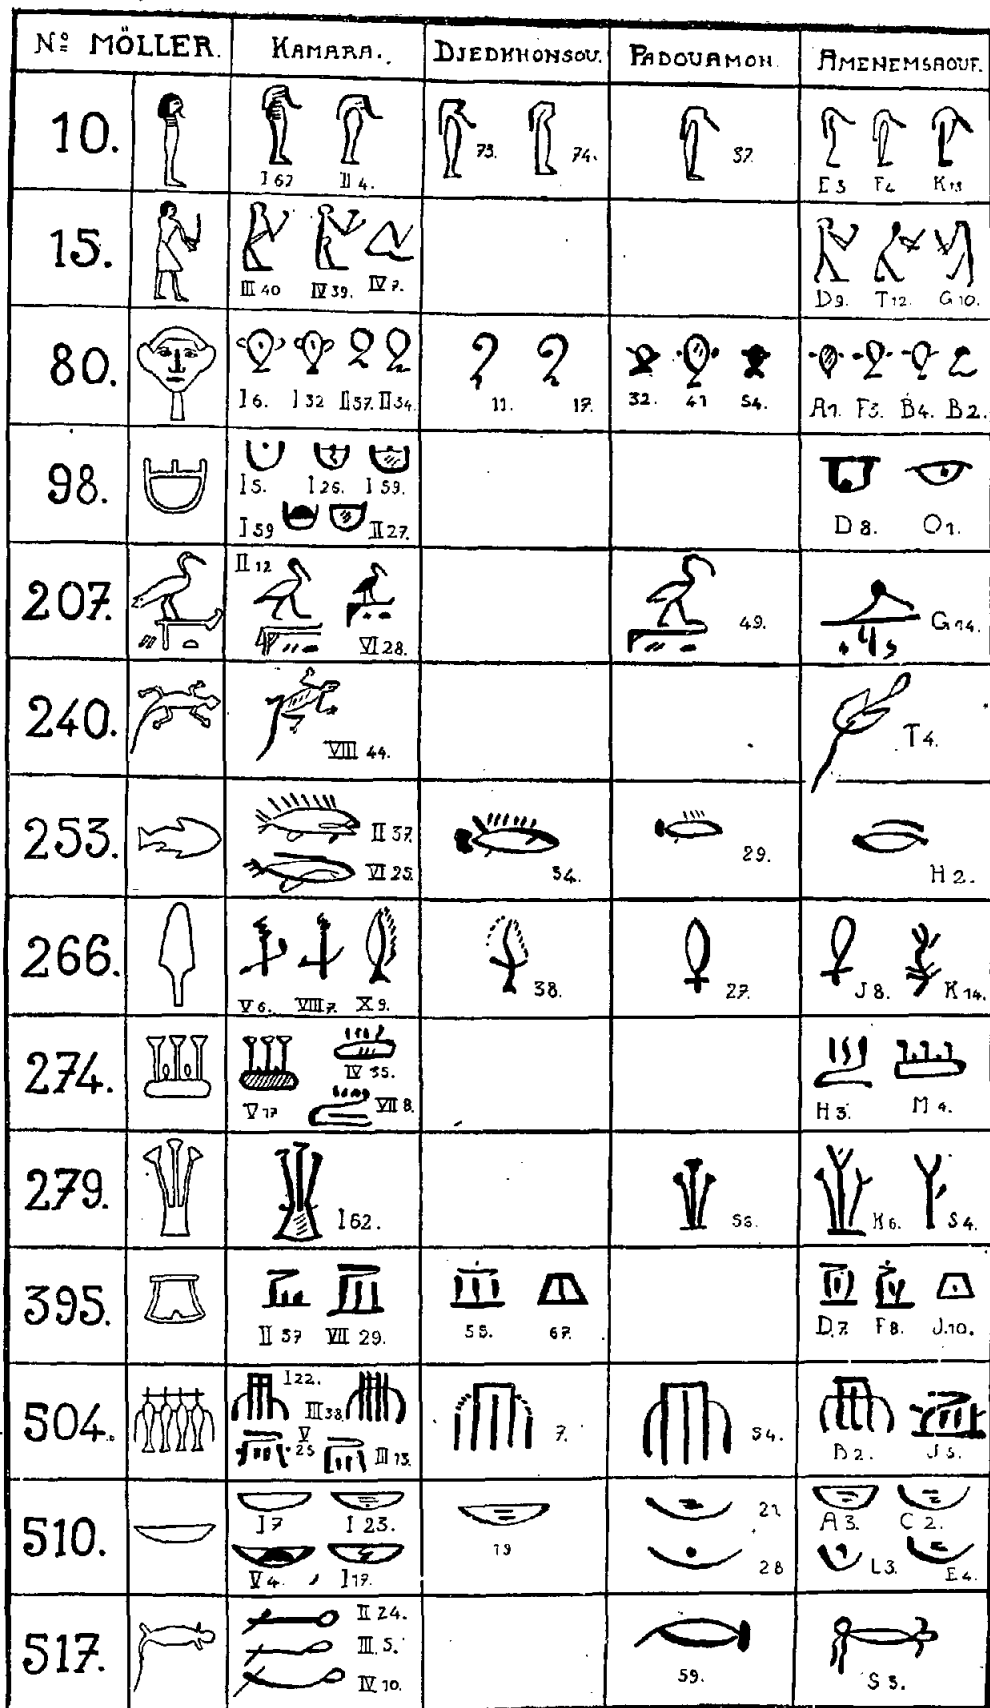 Nº MÖLLER. KAMARA. DJEDKHONSOU. PADOUAMON. AMENEMSAOUF.
10. I 67 II 4. 73. 74. 37. E 3 F 4 K 13
15. III 40 IV 39. IV 7. D 9. T 12. G 10.
80. I 6. I 32 II 57. II 34. 11. 17. 32. 41 54. A 1. F 3. B 4. B 2.
98. I 5. I 26. I 59. D 8. O 1.
I 59 II 27.
207. II 12 VI 28. 49. G 14.
240. VIII 44. T 4.
253. II 37. 54. 29. H 2.
VI 25.
266. V 6. VIII 7. X 9. 38. 27. J 8. K 14.
274. V 17 IV 35. VII 8. H 3. M 4.
279. I 62. 56. K 6. S 4.
395. II 57 VII 29. 55. 67. D. 7. F 8. J. 10.
504. I 22. III 38. 7. 54. B 2. J 5.
V 25 III 15.
510. I 7 I 23. 19 21 A 3. C 2.
V 4. I 17. 28 L 3. E 4.
517. II 24. 59. S 3.
III. 5.
IV 10.